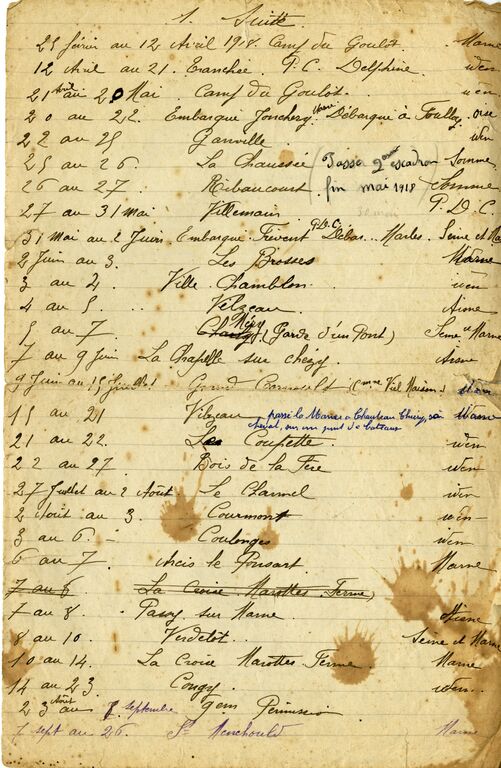 1. Suite
25 février au 12 Avril 1918. Camp du Goulot. Marne
12 Avril au 21. Tranchée P.C. Delphine. iden
21 Avril au 20 Mai Camp du Goulot. iden
20 au 22. Embarque Jonchery Marne Débarque à Feuilloy oise
22 au 25 Ganville iden
25 au 26. La Chaussée (Passé 2ème escadron Somme
26 au 27 Ribaucourt. fin mai 1918 Somme
27 au 31 mai Villemain 30 mai P.D.C
31 Mai au 2 Juin. Embarque Frévent P.D.C. Débar... Marles. Seine et Mar
2 Juin au 3. Les Brosses Marne
3 au 4. Ville Chamblon. iden
4 au 5 ... Vilzeau. Aisne
5 au 7. Nézy (Garde d'un Pont) Seine et Marne
7 au 9 Juin La Chapelle sur chézy. Aisne
9 Juin au 15 Grand (Cmne Viel Maison)
15 au 21 Vilzeau passé la Marne à Chauteau Thiery, son Marne
cheval, sur un pont de bateaux
21 au 22. Les Coupette. iden
22 au 27 Bois de la Fère iden
27 Juillet au 2 Août Le Charmel iden
2 Août au 3. Courmont iden
3 au 6. - Coulonges iden
6 au 7. Arcis le Ponsart. Marne
7 au 8 La Croise Marottes Ferme)
7 au 8 Passy sur Marne Aisne
8 au 10. Verdelot. Seine et Marne
10 au 14. La Croise Marottes Ferme. Marne
14 au 23 Congy. iden
23 Août au 7 septembre Gem Permission
7 sept au 26. Ste Menehould Marne